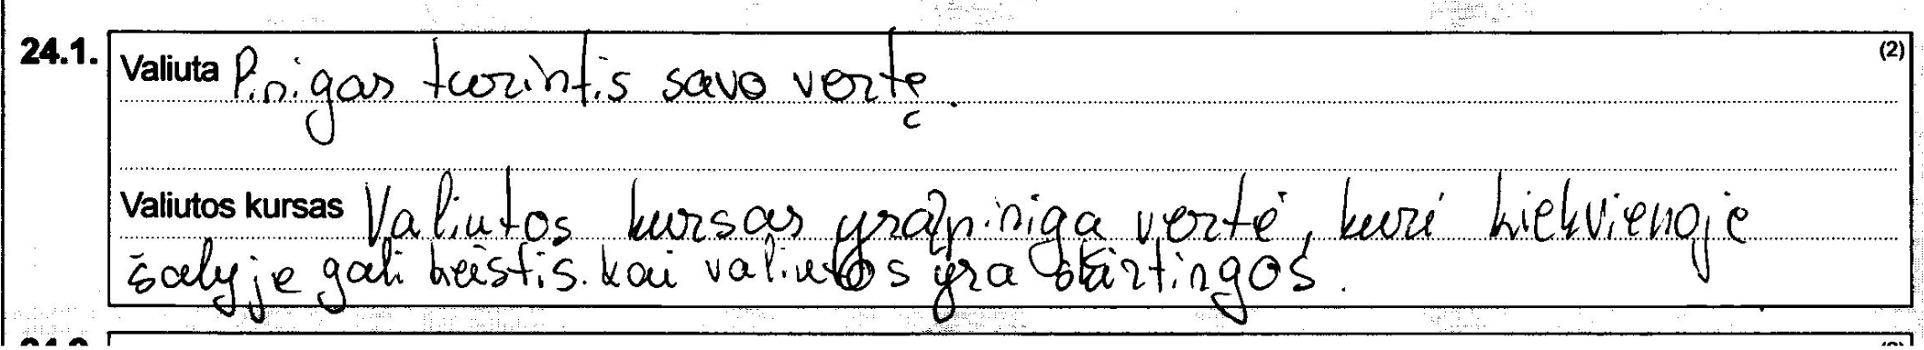 24.1.
(2)
Valiuta Pinigas turintis savo vertę.
Valiutos kursas Valiutos kursas yra piniga vertė, kuri kiekvienoje
šalyje gali keistis. kai valiutos yra skirtingos.